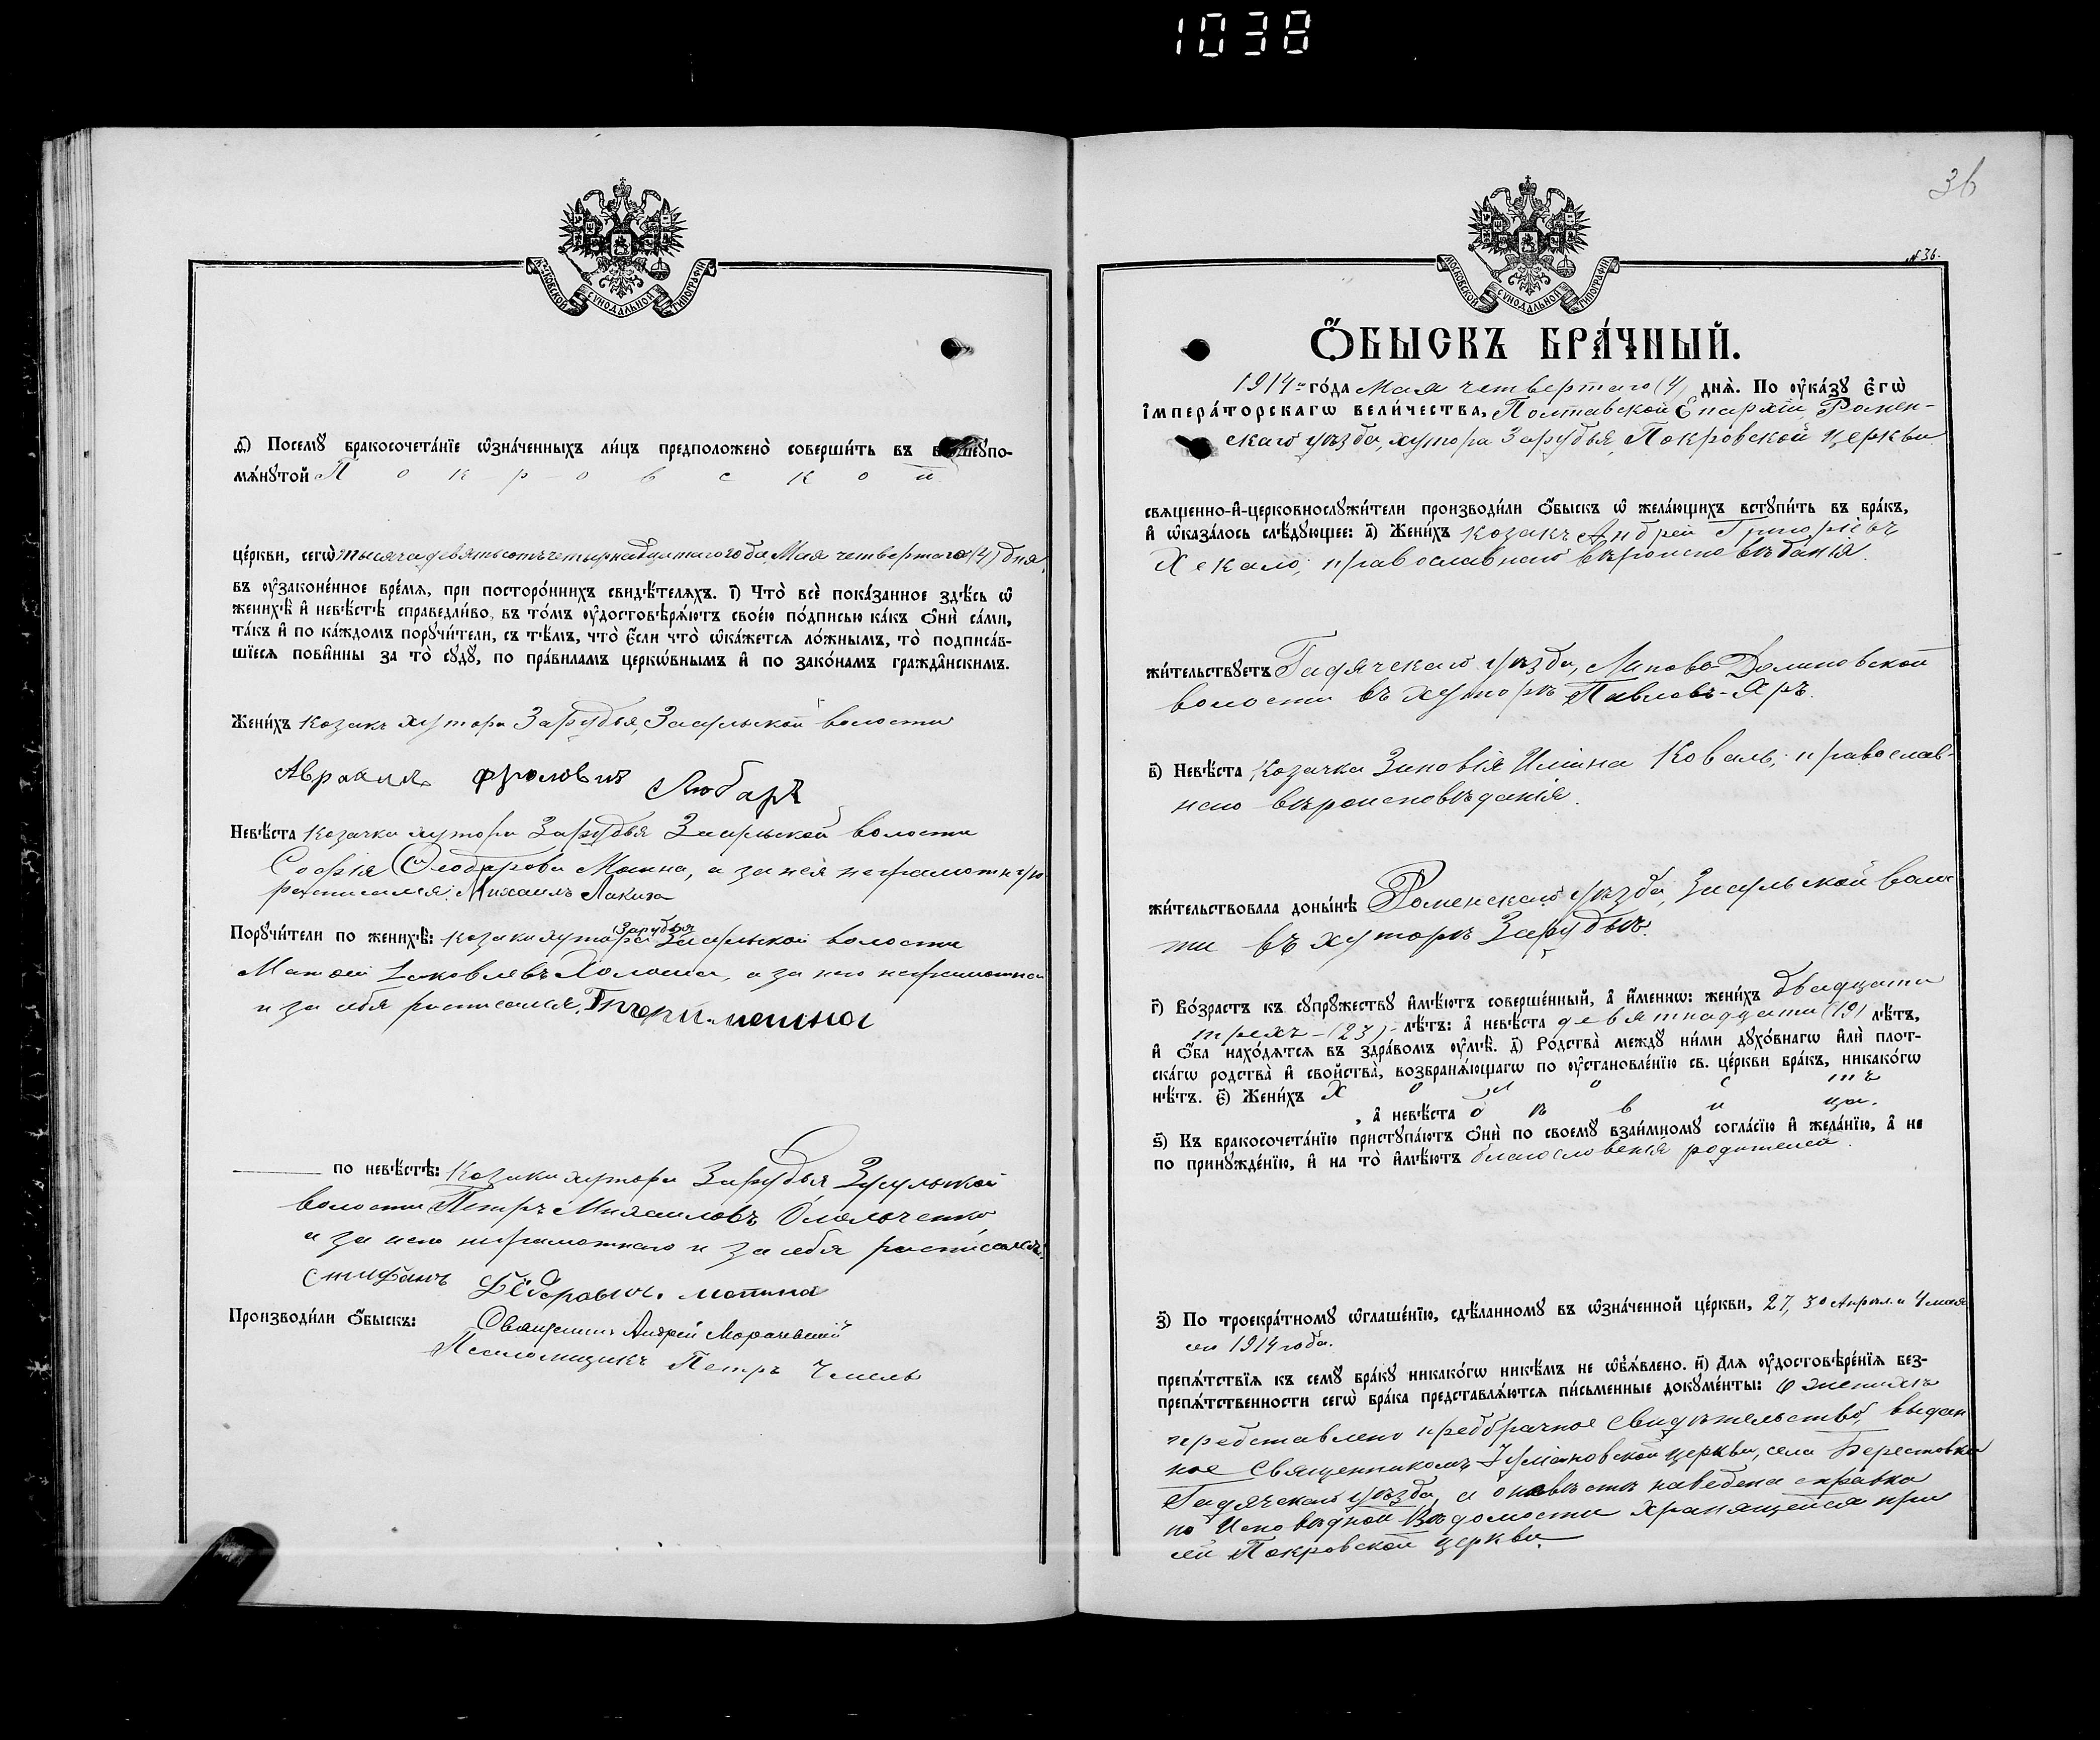 1038
МОСКОВСКОЙ СѴНОДАЛЬНОЙ ТИПОГРАФІИ
д҃) Посемꙋ бракосочета́нїе ѡ҆зна́ченныхъ ли́цъ предположено̀ соверши́ть въ вышеꙋпо-
мѧ́нꙋтой Покровской
це́ркви, сегѡ̀ тысяча девятьсотъ четырнадцатаго года Мая четвертаго (4) дня,
въ ᲂу҆законе́нное вре́мѧ, при посторо́ннихъ свидѣ́телѧхъ. і҃) Что̀ всѐ пока́занное здѣ́сь ѡ҆
женихѣ̀ и҆ невѣ́стѣ справедли́во, въ то́мъ ᲂу҆достовѣрѧ́ютъ свое́ю по́дписью ка́къ ѻ҆нѝ са́ми,
та́къ и҆ по ка́ждомъ порꙋчи́тели, съ тѣ́мъ, что̀ є҆́сли что̀ ѡ҆ка́жетсѧ ло́жнымъ, то̀ подписа́в-
шїесѧ пови́нны за то̀ сꙋдꙋ̀, по пра́виламъ церкѡ́внымъ и҆ по зако́намъ гражда́нскимъ.
Жени́хъ козакъ хутора Зарудья, Засульской волости
Авраамъ Фроловъ Любаръ
Невѣ́ста козачка хутора Зарудья Засульской волости
Софія Матина, а за нея неграмотную
росписался: Михаилъ Лакиза
Порꙋчи́тели по женихѣ̀: козаки хутора Зарудья Засульской волости
Матѳей Іаковлевъ Холоша, а за него неграмотнаго
и за себя росписался,
по невѣ́стѣ: Козаки хутора Зарудья Засульской
волости Петръ Михаиловъ Омельченко,
а за него неграмотнаго и за себя росписался:
Стифанъ Федоровичъ Матина
Производи́ли ѻ҆́быскъ: Священникъ Андрей Морачевскій
Псаломщикъ Петръ Чмель
36
№ 36.
МОСКОВСКОЙ СѴНОДАЛЬНОЙ ТИПОГРАФІИ
Ѻ҆́БЫСКЪ БРА́ЧНЫЙ.
1914го го́да Мая четвертаго (4) днѧ̀. По ᲂу҆ка́зꙋ є҆гѡ̀
і҆мпера́торскагѡ вели́чества, Полтавской Епархіи, Ромен-
скаго уѣзда, хутора Зарудья, Покровской церкви
свѧщенно-и҆-церковнослꙋжи́тели производи́ли ѻ҆́быскъ ѡ҆ жела́ющихъ встꙋпи́ть въ бра́къ,
и҆ ѡ҆каза́лось слѣ́дꙋющее: а҃) Жени́хъ козакъ Андрей Григорьевъ
Хекало, православнаго вѣроисповѣданія.
жи́тельствꙋетъ Гадячскаго уѣзда, Липово-Долиновской
волости въ хуторѣ Павловъ-Яръ.
в҃) Невѣ́ста Козачка Зиновія Иліина Коваль, православ-
наго вѣроисповѣданія.
жи́тельствовала доны́нѣ Роменскаго уѣзда, Засульской волос
ти въ хуторѣ Зарудьѣ.
г҃) Во́зрастъ къ сꙋпрꙋ́жествꙋ и҆мѣ́ютъ соверше́нный, а҆ и҆́меннѡ: жени́хъ двадцати
трехъ - (23) - лѣ́тъ: а҆ невѣ́ста девятнадцати (19) лѣ́тъ,
и҆ ѻ҆́ба нахо́дѧтсѧ въ здра́вомъ ᲂу҆мѣ̀. д҃) Ро́дства междꙋ ни́ми дꙋхо́внагѡ и҆лѝ плот-
ска́гѡ родства̀ и҆ свойства̀, возбранѧ́ющагѡ по ᲂу҆становле́нїю св. це́ркви бра́къ, никако́гѡ
нѣ́тъ. є҃) Жени́хъ Холостъ
, а҆ невѣ́ста дѣвица.
ѕ҃) Къ бракосочета́нїю пристꙋпа́ютъ ѻ҆нѝ по своемꙋ̀ взаи́мномꙋ согла́сїю и҆ жела́нїю, а҆ не
по принꙋжде́нїю, и҆ на то̀ и҆мѣ́ютъ благословенія родителей.
з҃) По троекра́тномꙋ ѡ҆глаше́нїю, сдѣ́ланномꙋ въ ѡ҆зна́ченной це́ркви, 27, 30 Апрѣля и 4 мая
сего 1914 года.
препѧ́тствїѧ къ семꙋ̀ бра́кꙋ никако́гѡ никѣ́мъ не ѡ҆б̾ѧ́влено. и҃) Длѧ ᲂу҆достовѣре́нїѧ без-
препѧ́тственности сегѡ̀ бра́ка представлѧ́ютсѧ пи́сьменные докꙋме́нты: О женихѣ
представлено предбрачное свидѣтельство, выдан
ное священникомъ церкви, села Берестовки
Гадячскаго уѣзда, а о невѣстѣ наведена справка
по Исповѣдной Вѣдомости хранящейся при
сей Покровской церкви.